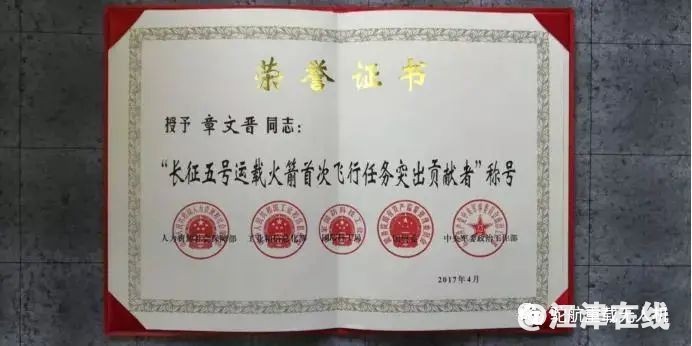 荣誉证书
授予 章文晋 同志：
“长征五号运载火箭首次飞行任务突出贡献者”称号
人力资源社会保障部 工业和信息化部 国防科工局 国资委 中央军委政治工作部
2017年4月
江津在线